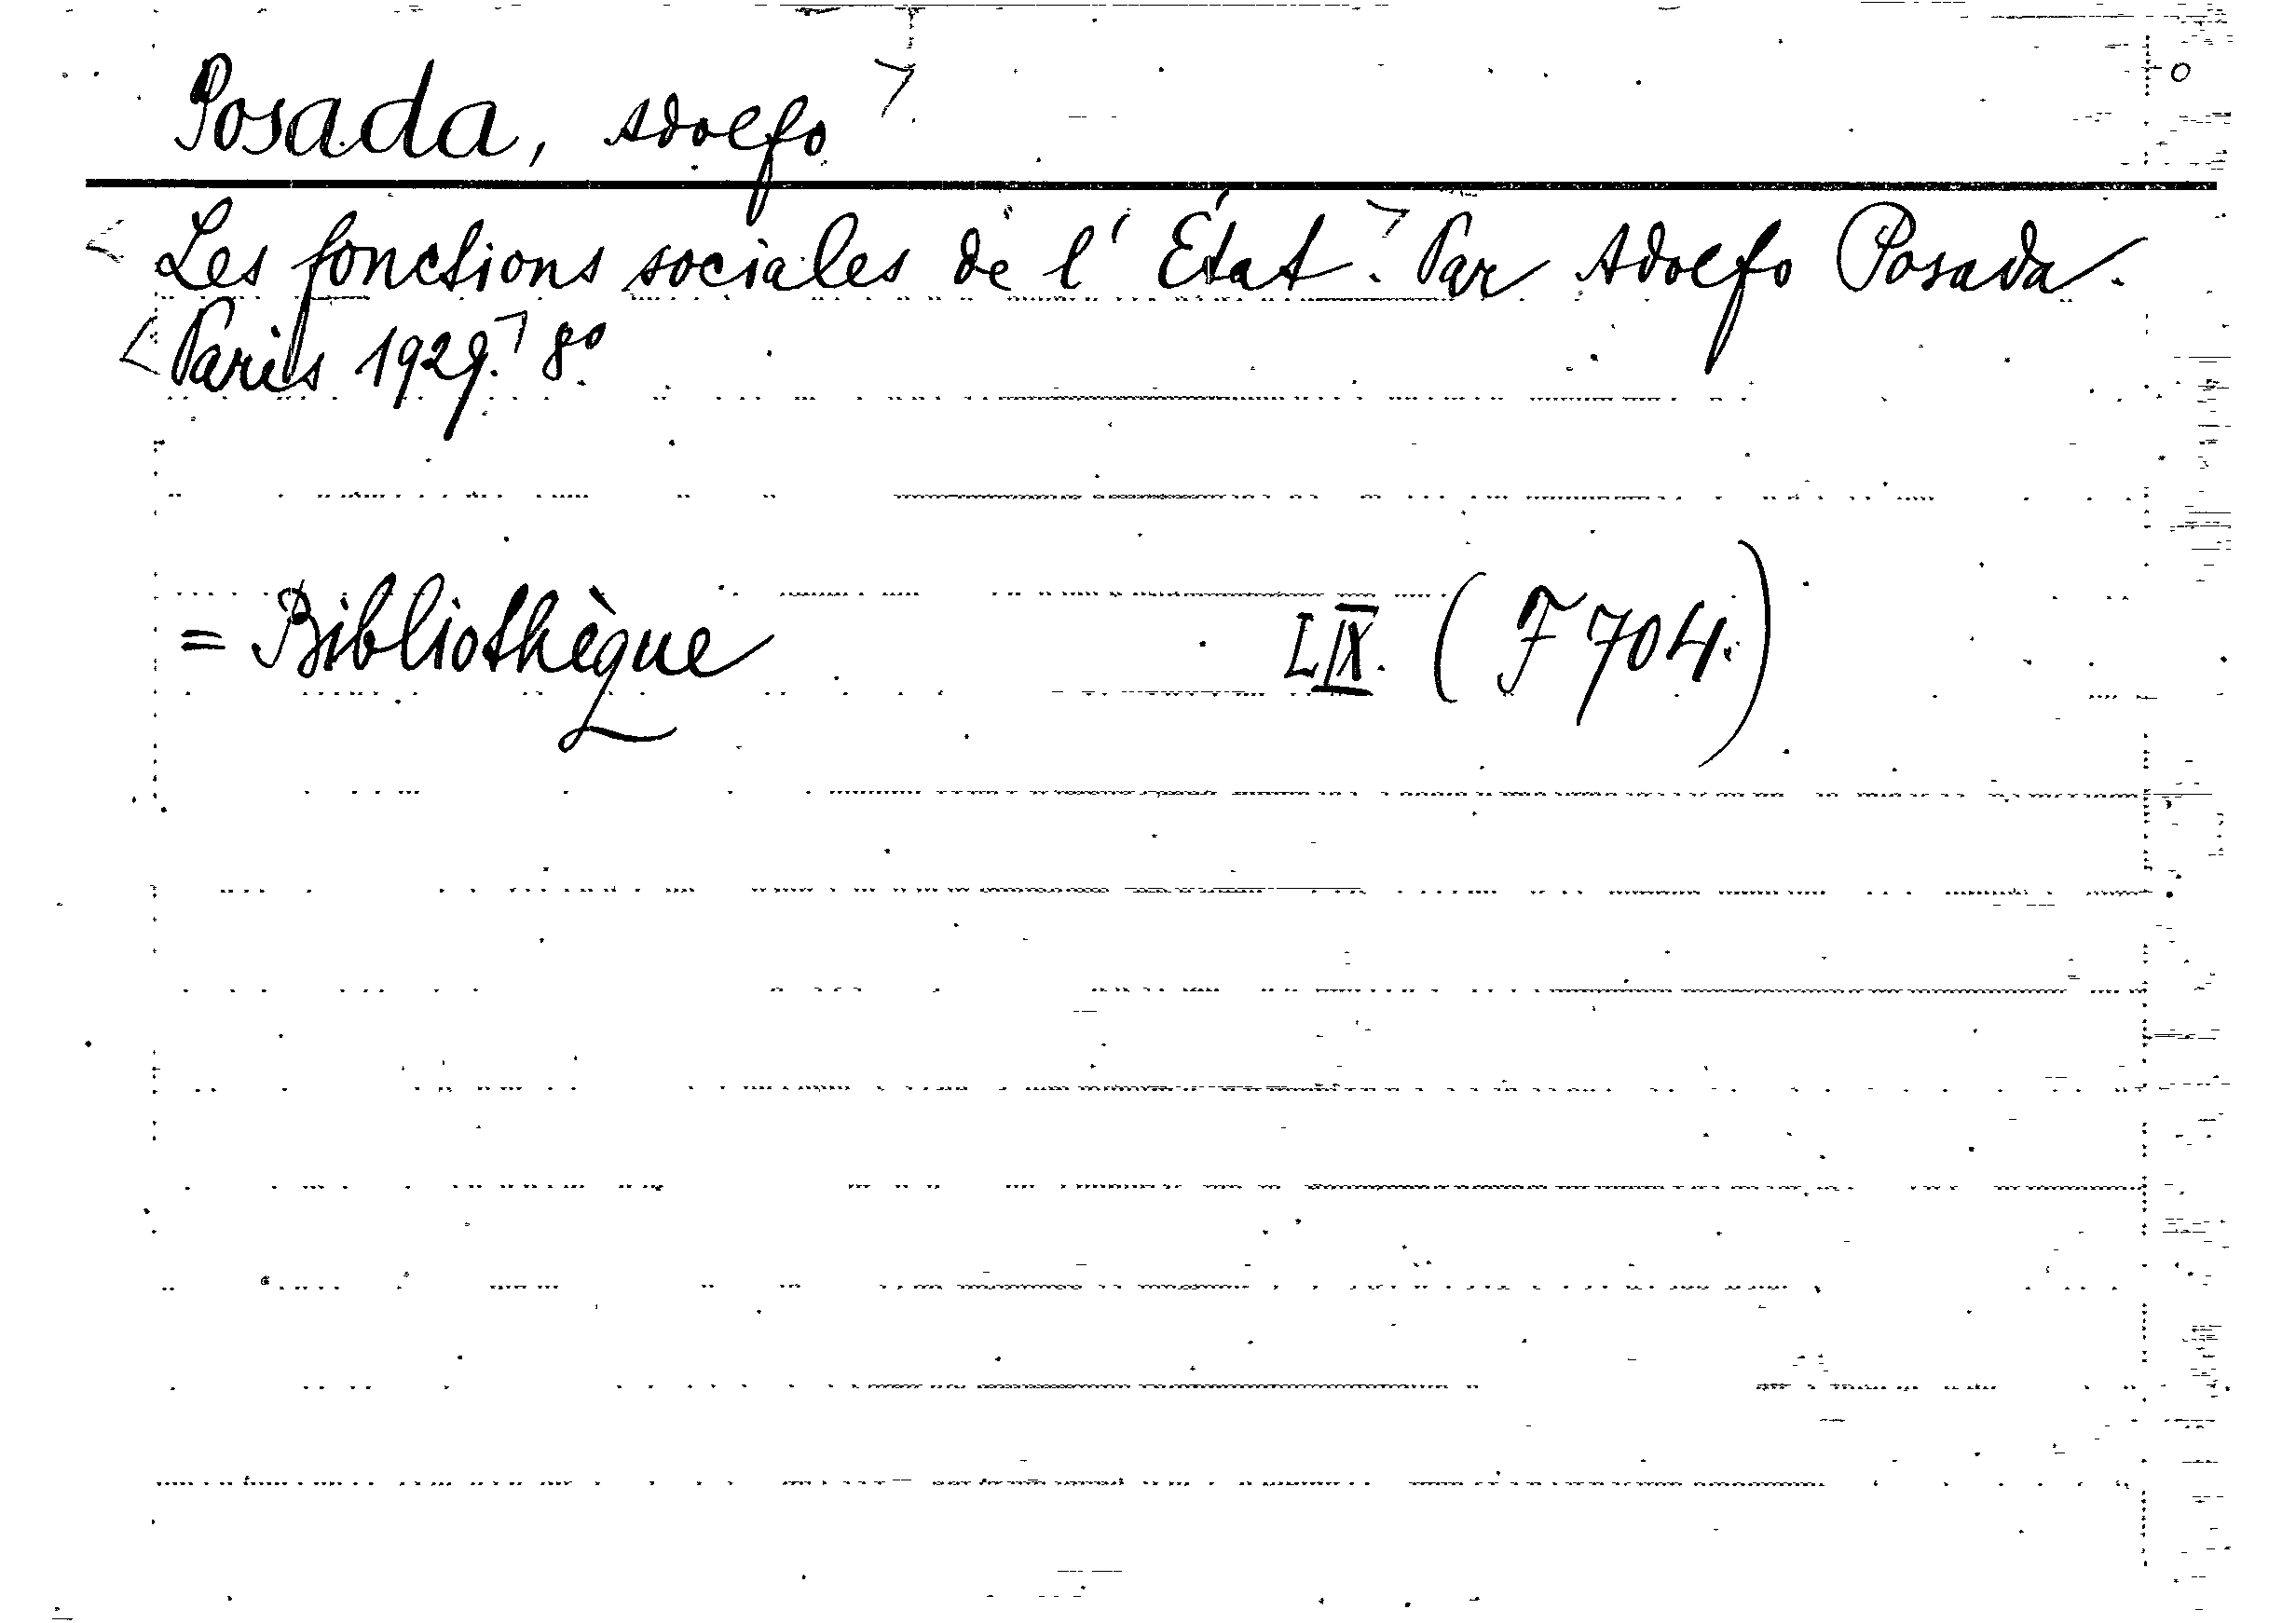 Posada, Adolfo
Les fonctions sociales de l'État. Par Adolfo Posada.
Paris 1929. 8°.
= Bibliothèque LIX. (F 704.)